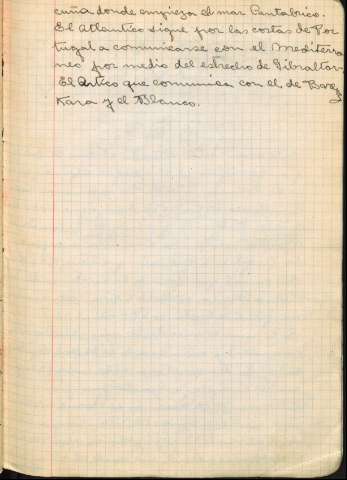 cuña donde empieza el mar Cantabrico.
El Atlantico sigue por las costas de Por
tugal a comunicarse con el Mediterra
neo por medio del estrecho de Gibraltar.
El Artico que comunica con el de
Kara y el Blanco.